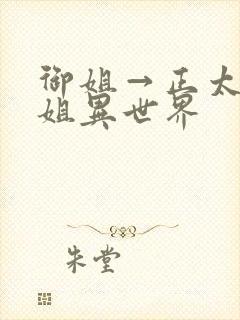 御姐→正太
姐異世界
朱堂